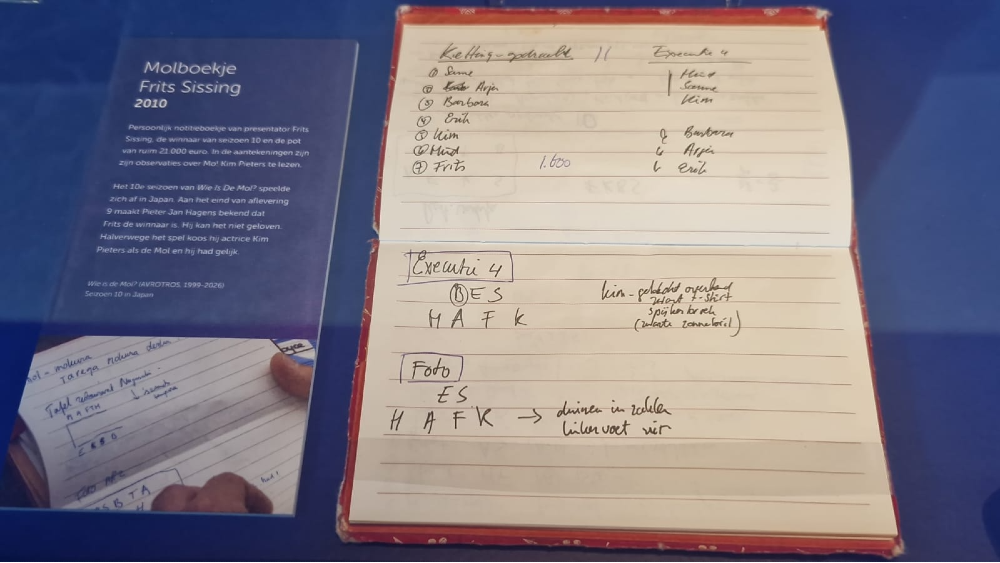 Molboekje
Frits Sissing
2010
Persoonlijk notitieboekje van presentator Frits
Sissing, de winnaar van seizoen 10 en de pot
van ruim 21.000 euro. In de aantekeningen zijn
zijn observaties over Mol Kim Pieters te lezen.
Het 10e seizoen van Wie Is De Mol? speelde
zich af in Japan. Aan het eind van aflevering
9 maakt Pieter Jan Hagens bekend dat
Frits de winnaar is. Hij kan het niet geloven.
Halverwege het spel koos hij actrice Kim
Pieters als de Mol en hij had gelijk.
Wie is de Mol? (AVROTROS, 1999-2026)
Seizoen 10 in Japan
Tafel restaurant
Executie 4
① Sanne
② Arjen
③ Barbara
④ Erik
⑤ Kim
⑥ Hind
⑦ Frits 1.600
Hind
Sanne
Kim
Barbara
Arjen
Erik
Executie 4
BES
H A F K
Kim - geblokt overhemd
zwart t-shirt
spijkerbroek
(zwarte zonnebril)
Foto
ES
H A F K → duimen in zakken
linkervoet